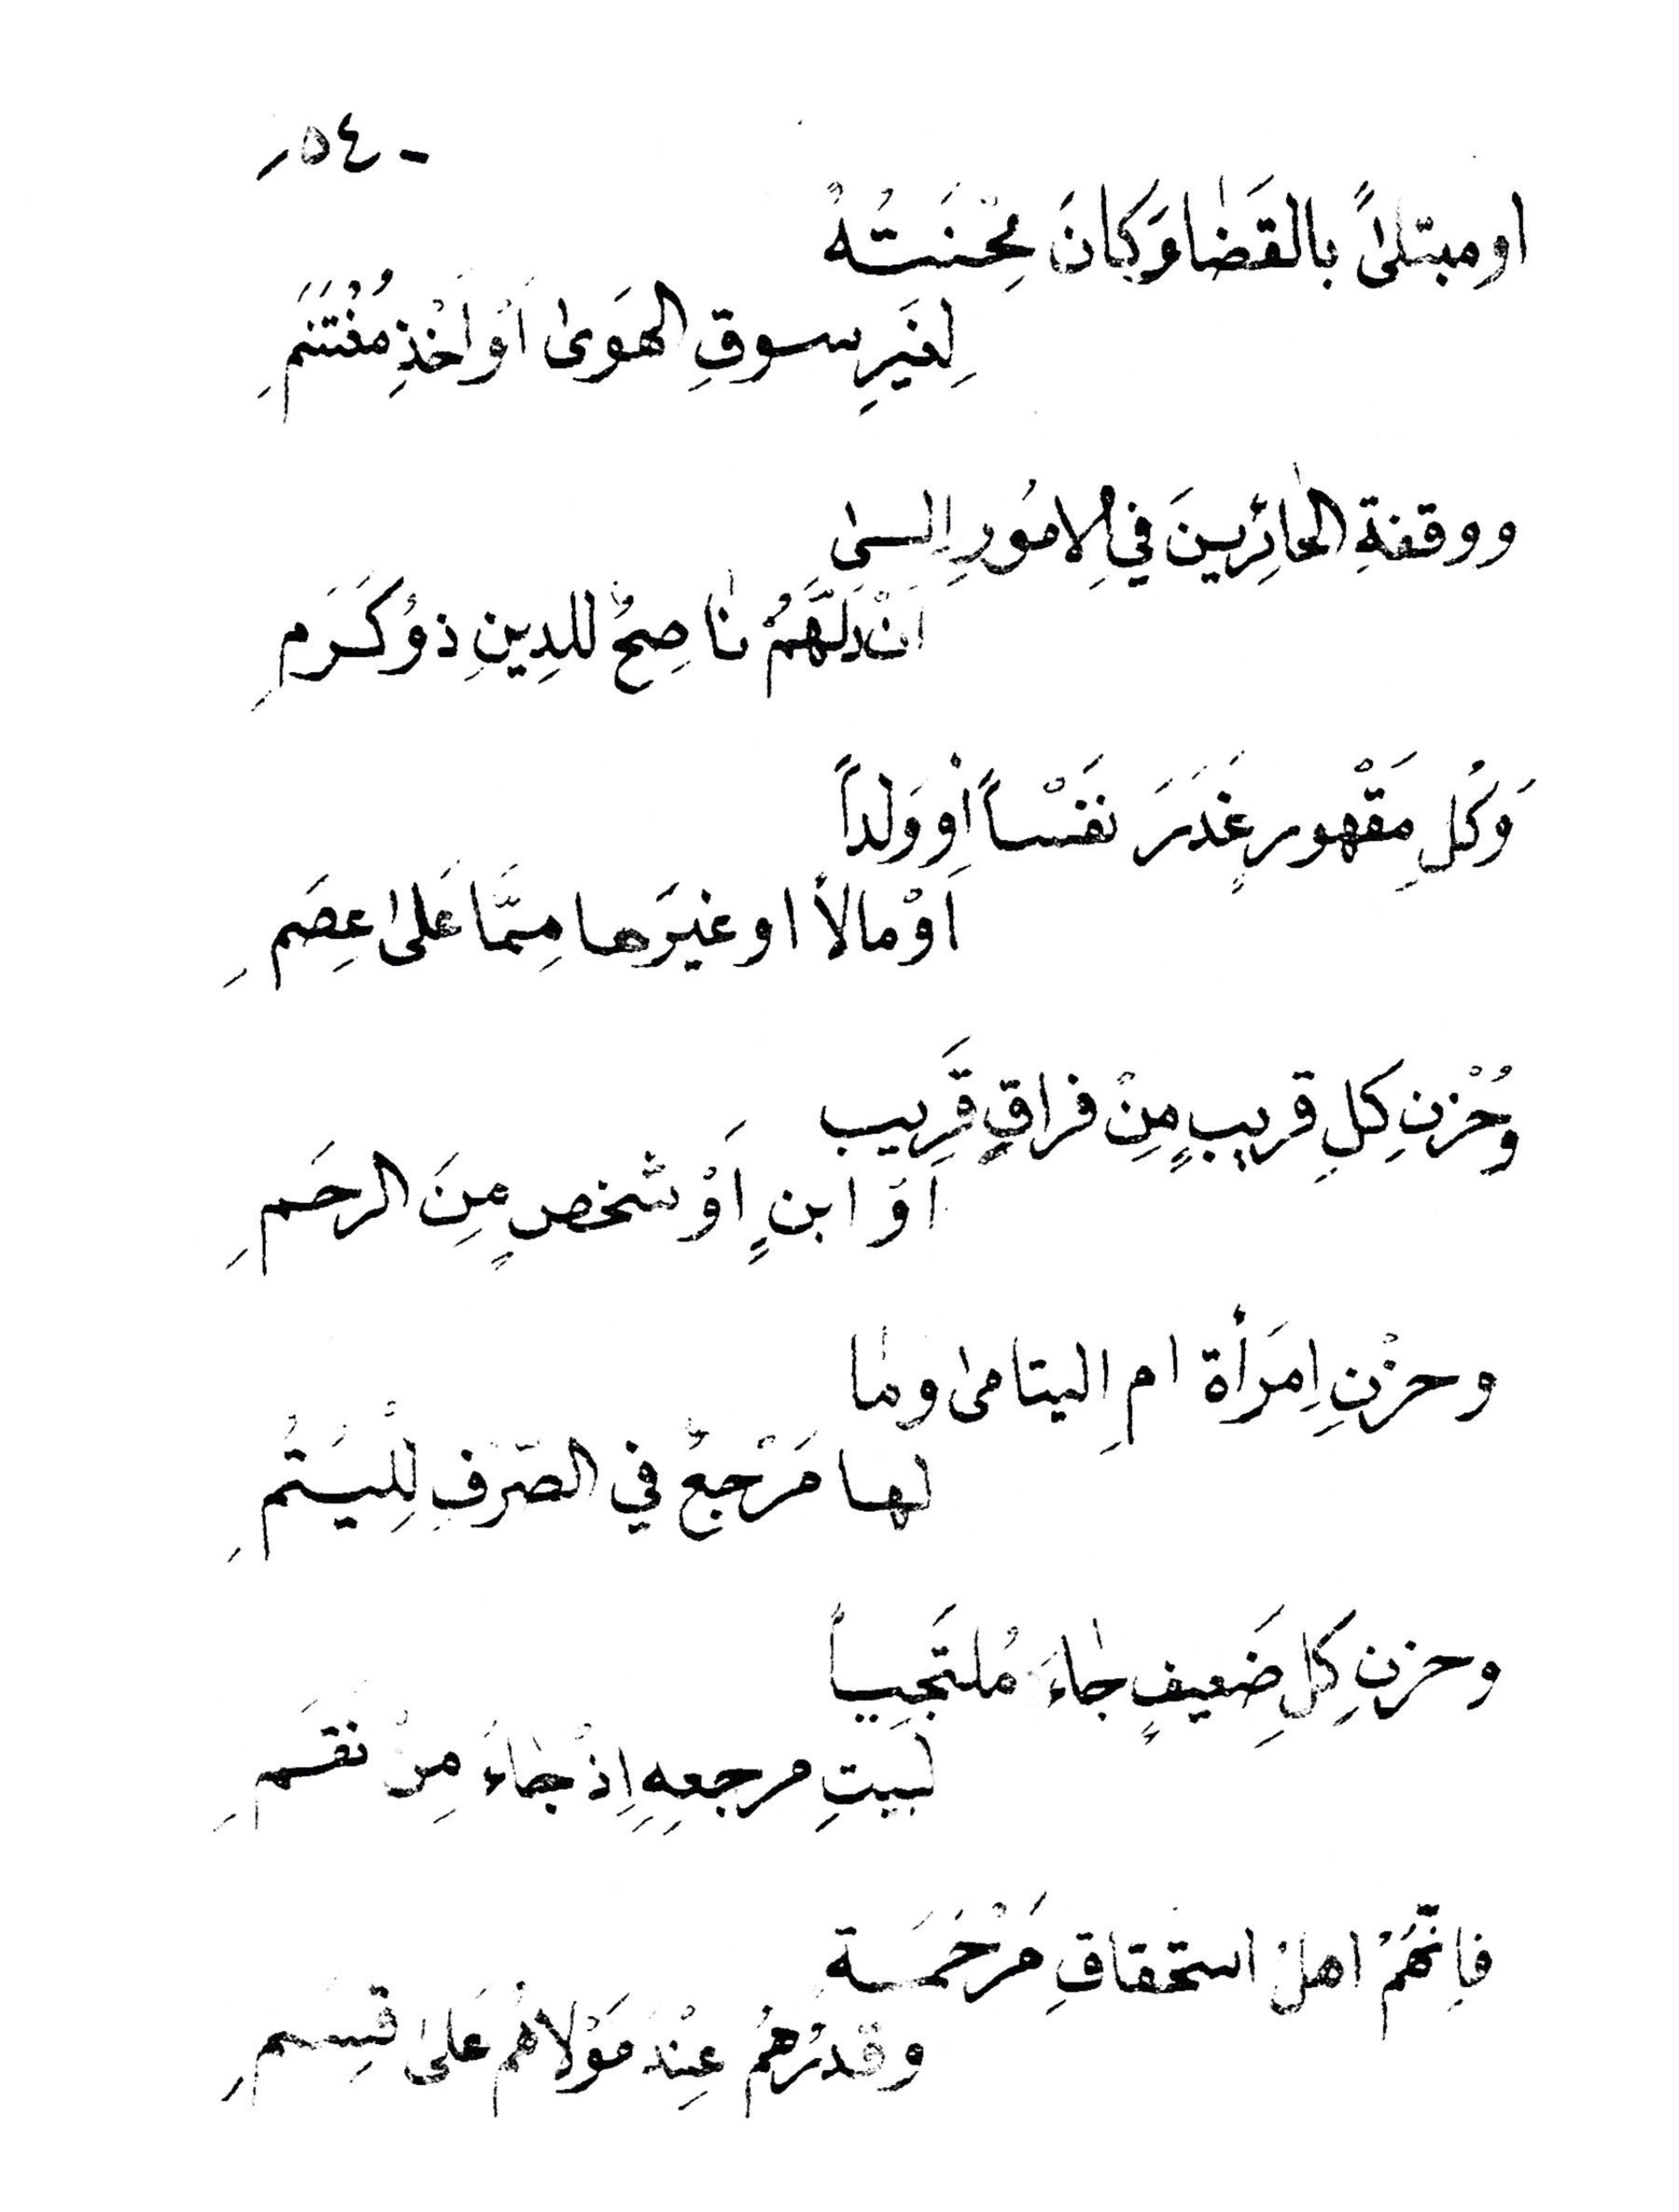 - ٥٤ -
او مبتلىً بالقَضٰا وَكانَ مِحْنَتُهُ
لِغَيرِ سوقِ الهَوىٰ اَوْ اَخْذِ مُغْتَنَمِ
ووقفةِ الحٰائِرِينَ فِي الامُورِ اِلىٰ
اَنْ دَلَّهُمْ نٰاصِحٌ للدِينِ ذوُ كَرَمِ
وَكُلِ مَقْهورٍ غَدَرَ نَفْساً اَوْ وَلداً
اَوْ مالاً او غيرَها مِمَّا عَلىٰ عِصَمِ
وَحُزْنِ كلِ قريبٍ مِنْ فراقٍ قَرِيب
اَوْ ابنٍ اَوْ شخصٍ مِنَ الرحَمِ
وحزْنِ اِمَرأة امِ اليتامىٰ ومٰا
لها مَرْجعٌ في الصَرَفِ لِلْيُتُمِ
وحزنِ كلِ ضَعيفٍ جٰاءَ مُلتَجِياً
لبيتِ مرجعِهِ اِذْ جٰاءَ مِنْ نقَمِ
فاِنَّهُمْ اهلُ استحقاقِ مَرْحَمَةِ
وقدرُهُمُ عِنْدَ مَوْلاهُمُ عَلىٰ قِسَمِ